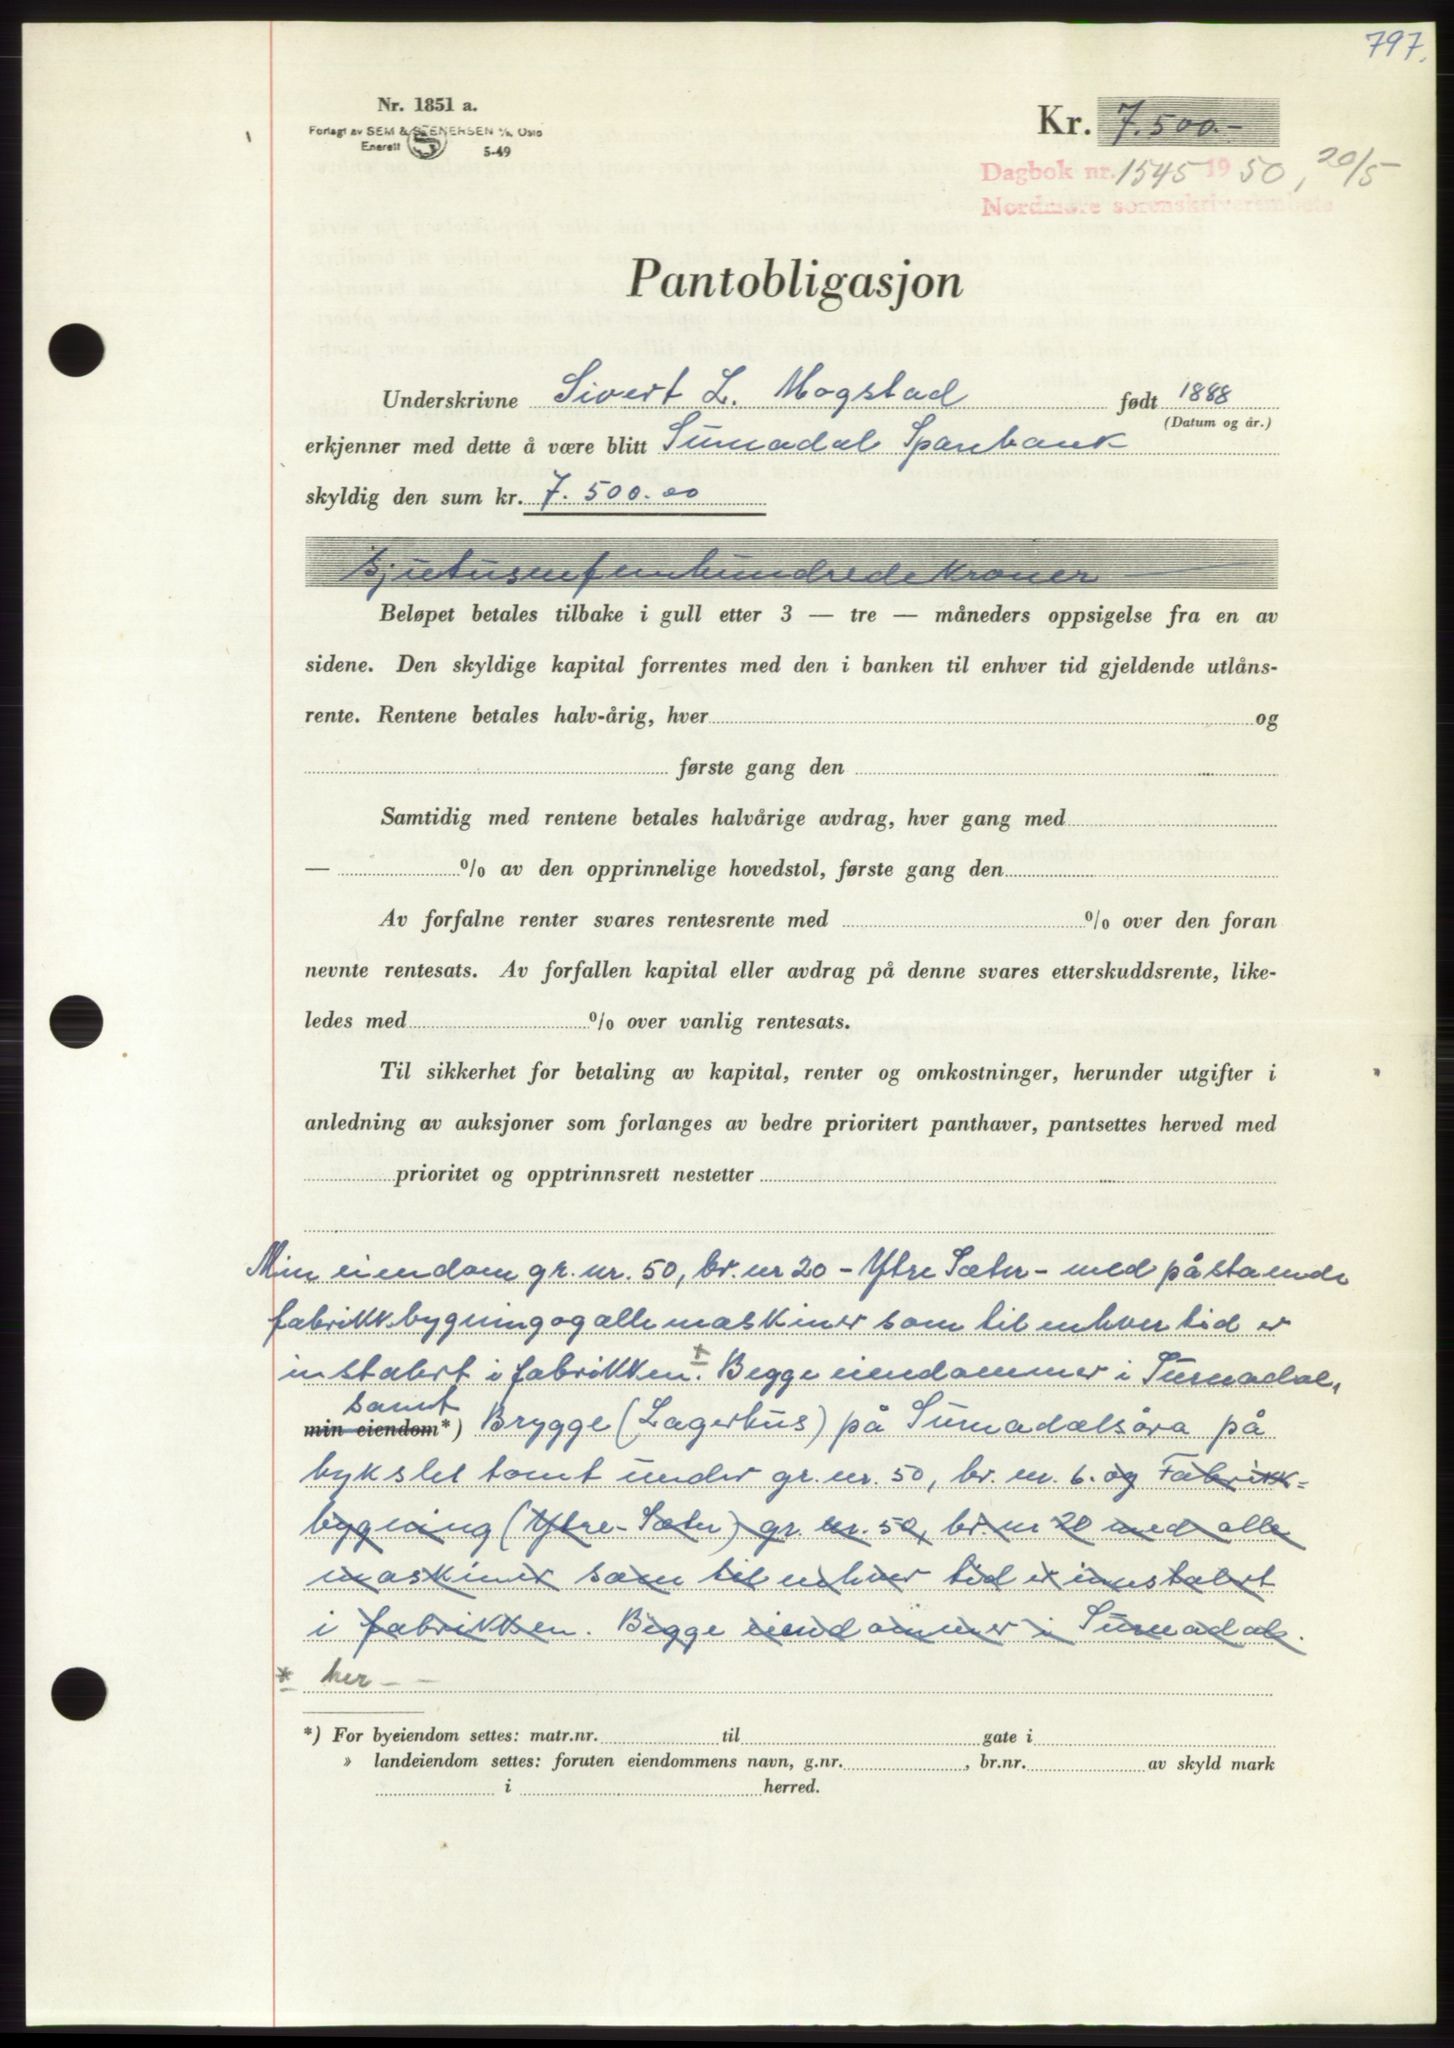 797.
Nr. 1851 a.
Forlagt av SEM & STENERSEN A/S, Oslo
Enerett
5-49
Kr. 7.500.-
Dagbok nr. 1545 1950, 20/5
Nordmøre sorenskriverembete
Pantobligasjon
Underskrivne Sivert L. Mogstad født 1888
(Datum og år.)
erkjenner med dette å være blitt Surnadal Sparebank
skyldig den sum kr. 7.500.00
Sjutusenfemhundredekroner —
Beløpet betales tilbake i gull etter 3 — tre — måneders oppsigelse fra en av
sidene. Den skyldige kapital forrentes med den i banken til enhver tid gjeldende utlåns-
rente. Rentene betales halv-årig, hver og
første gang den
Samtidig med rentene betales halvårige avdrag, hver gang med
— % av den opprinnelige hovedstol, første gang den
Av forfalne renter svares rentesrente med % over den foran
nevnte rentesats. Av forfallen kapital eller avdrag på denne svares etterskuddsrente, like-
ledes med % over vanlig rentesats.
Til sikkerhet for betaling av kapital, renter og omkostninger, herunder utgifter i
anledning av auksjoner som forlanges av bedre prioritert panthaver, pantsettes herved med
prioritet og opptrinnsrett nestetter
Min eiendom gr. nr. 50, br. nr 20 - Ytre Sæter - med påstående
fabrikkbygning og alle maskiner som til enhver tid er
instalert i fabrikken. + Begge eiendommer i Surnadal,
samt
min eiendom*) Brygge (Lagerhus) på Surnadalsøra på
bykslet tomt under gr. nr. 50, br. nr. 6. og Fabrikk-
bygning (Ytre-Sæter) gr. nr. 50, br. nr 20 med alle
maskiner som til enhver tid er innstalert
i fabrikken. Begge eiendommer i Surnadal.
* her - -
*) For byeiendom settes: matr.nr. til gate i
» landeiendom settes: foruten eiendommens navn, g.nr. , br.nr. av skyld mark
i herred.